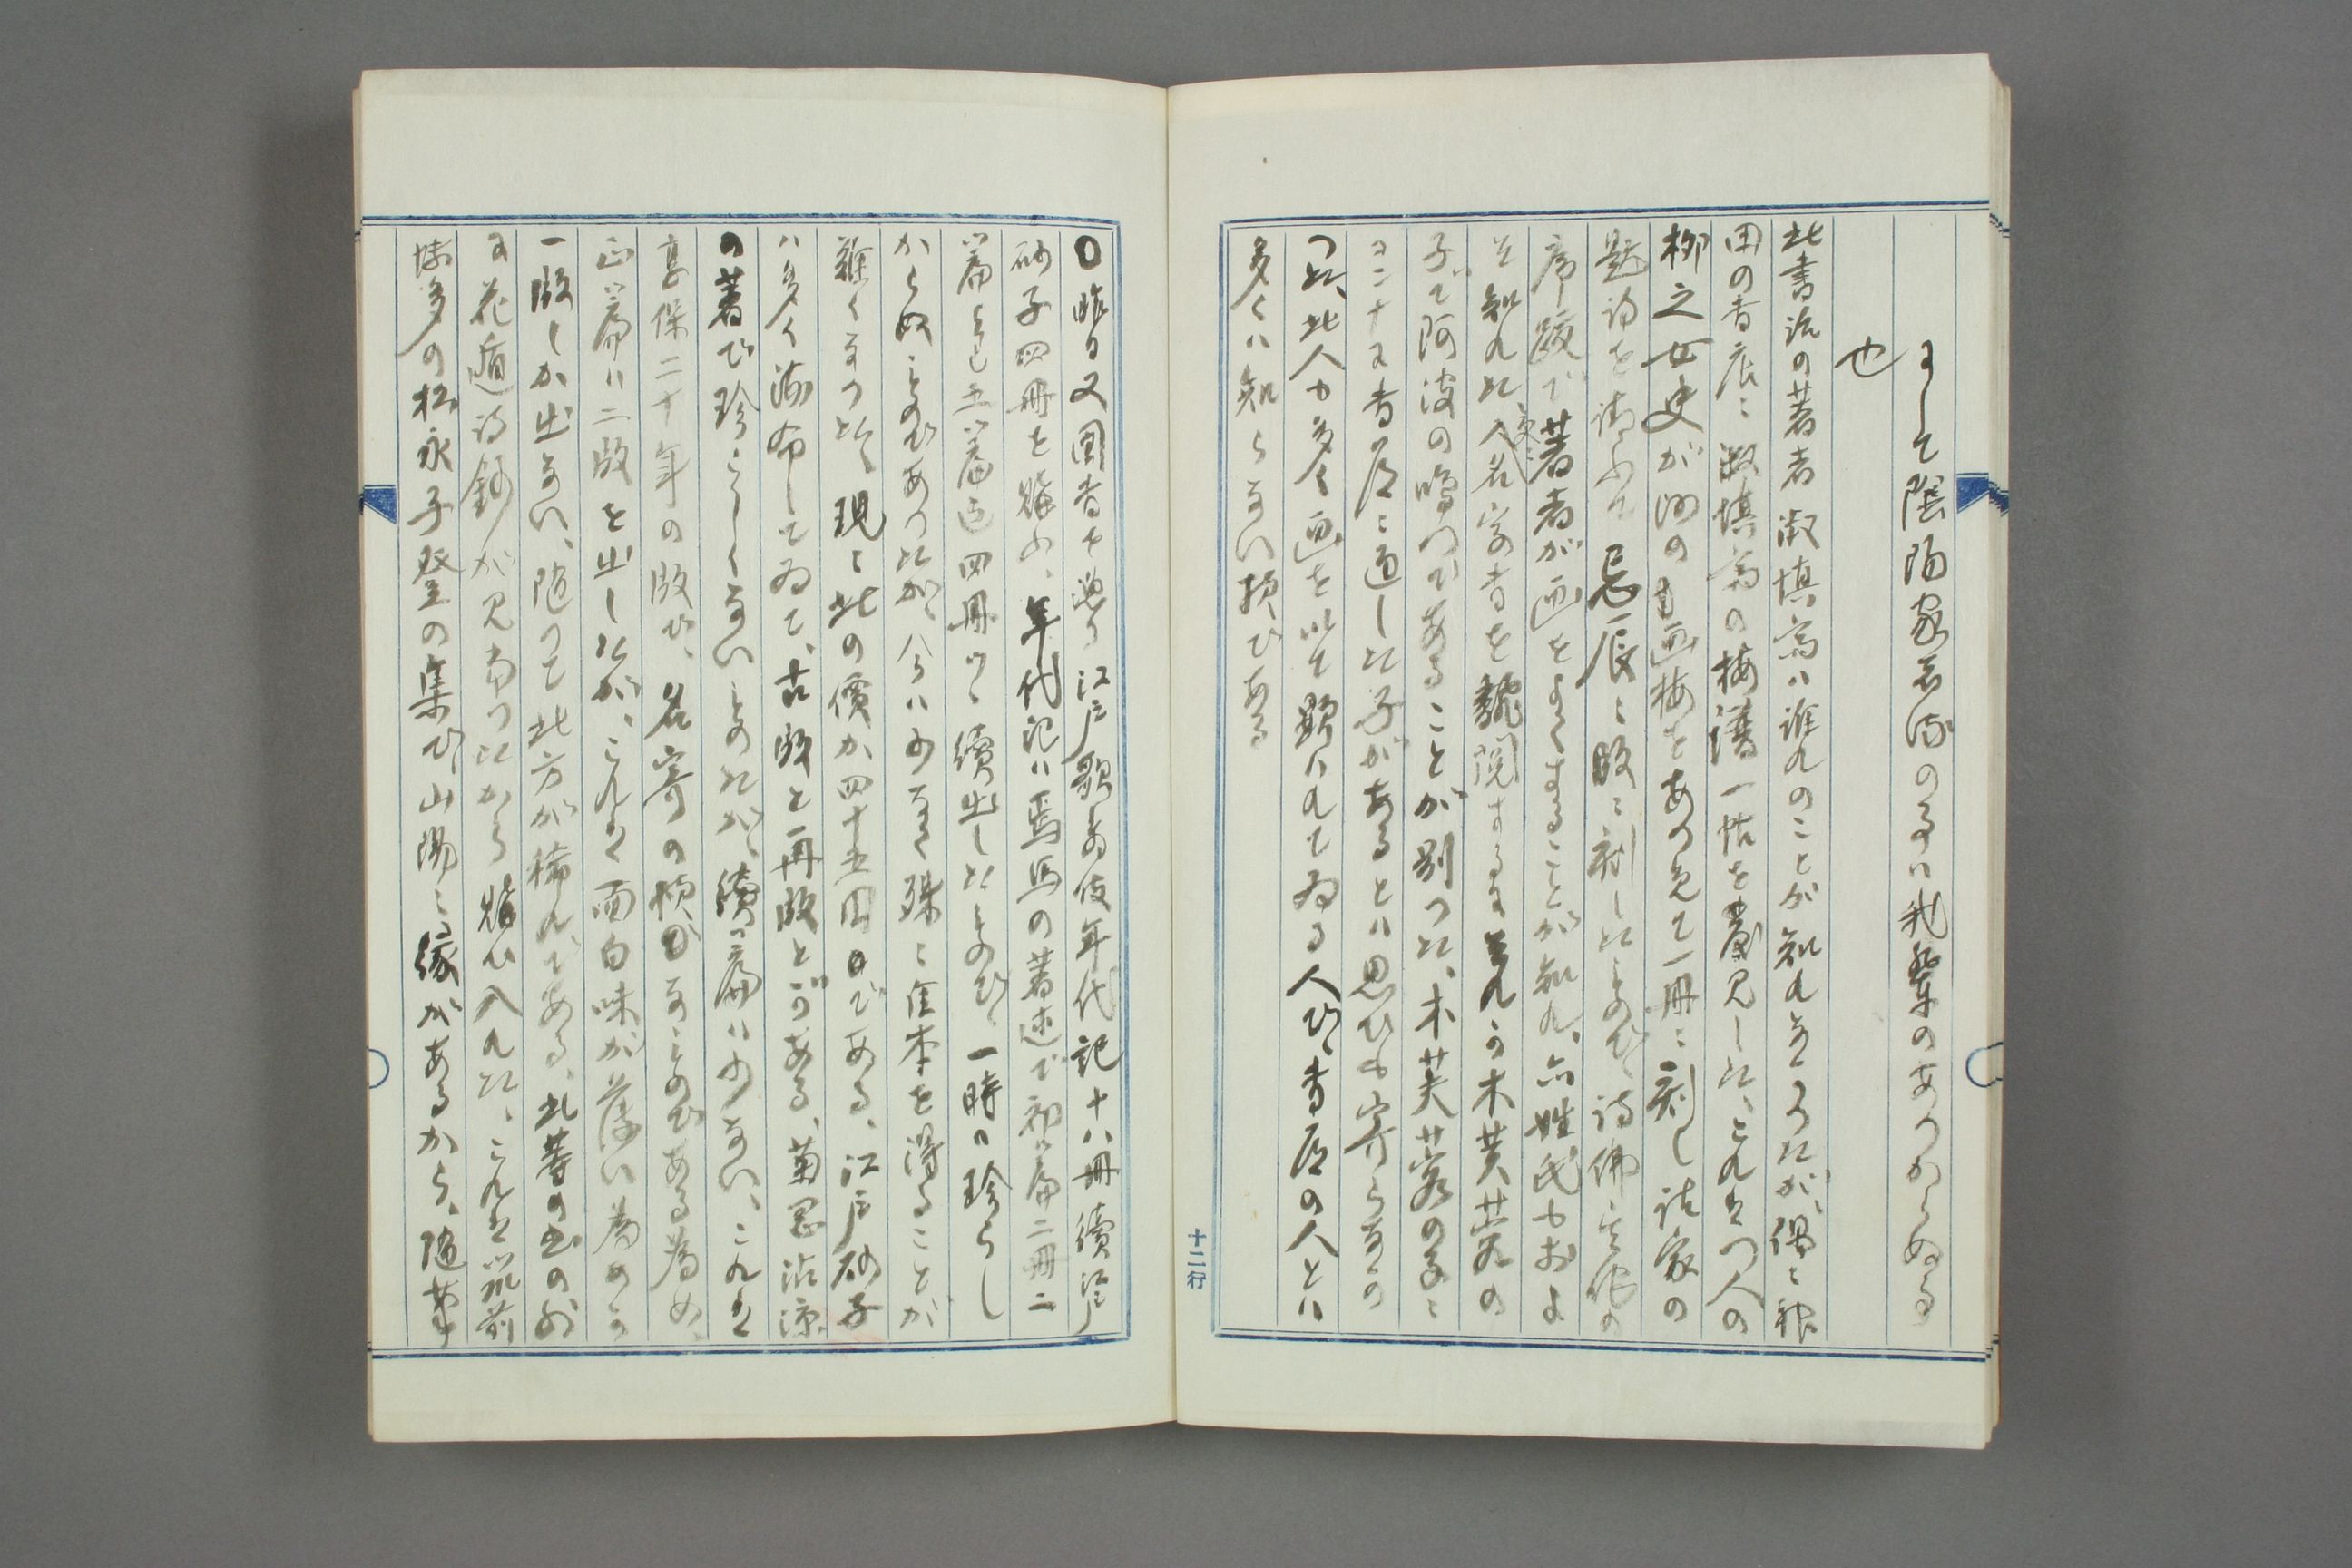 して陰陽家者流の事ハ我輩のあつからぬる
也
此書流の著者淑慎斎ハ誰れのことか知れなかつたが、偶ニ神
田の書店ニ淑慎斎の梅譜一帖を発見した、これはつ人の
柳之女史が河の画梅をあつめて一冊ニ刻し諸家の
題詩を請ふて、辰ニ版ニ刻したもので、詩佛
序跋で著者が画をよくすることが知れ、亦姓氏もおよ
そ知れた、人名字書を飜閲するに是れハ木芙蓉の
子で阿波の鳴門であることが別つた、木芙蓉の子ニ
コニナニ書ニ通した子があるとハ思ひも寄らなか
つた、此人も多く画を以て顕ハれてゐる人で、書の人とハ
多くハ知らない損である
○昨日又国書を 江戸歌舞伎年代記十八冊続江戸
砂子四冊を購ふ、年代記ハ焉馬の著述で初篇二冊二
篇より五篇迄四冊ツヽ續出したもので、一時ハ珍らし
からぬものであつたが、今ハ少なく殊ニ佳本を得ることが
難くなつた、現ニ此の價か四十五円である、江戸砂子
ハ多く流布してゐて、古版と再版とがある、菊岡沾涼
の著で珍らしくないものだが、續篇ハ少ない、これは
享保二十年の版で、名寄の様なものである為め、
正篇ハ二版を出したが、これは面白味が薄い為めか
一版しか出ない、随つて此方が稀れである、此等の書の外
に花遁詩鈔が見当つたから購ひ入れた、これは筑前
博多の松永子登の集で、山陽ニ縁があるから、随筆
十二行